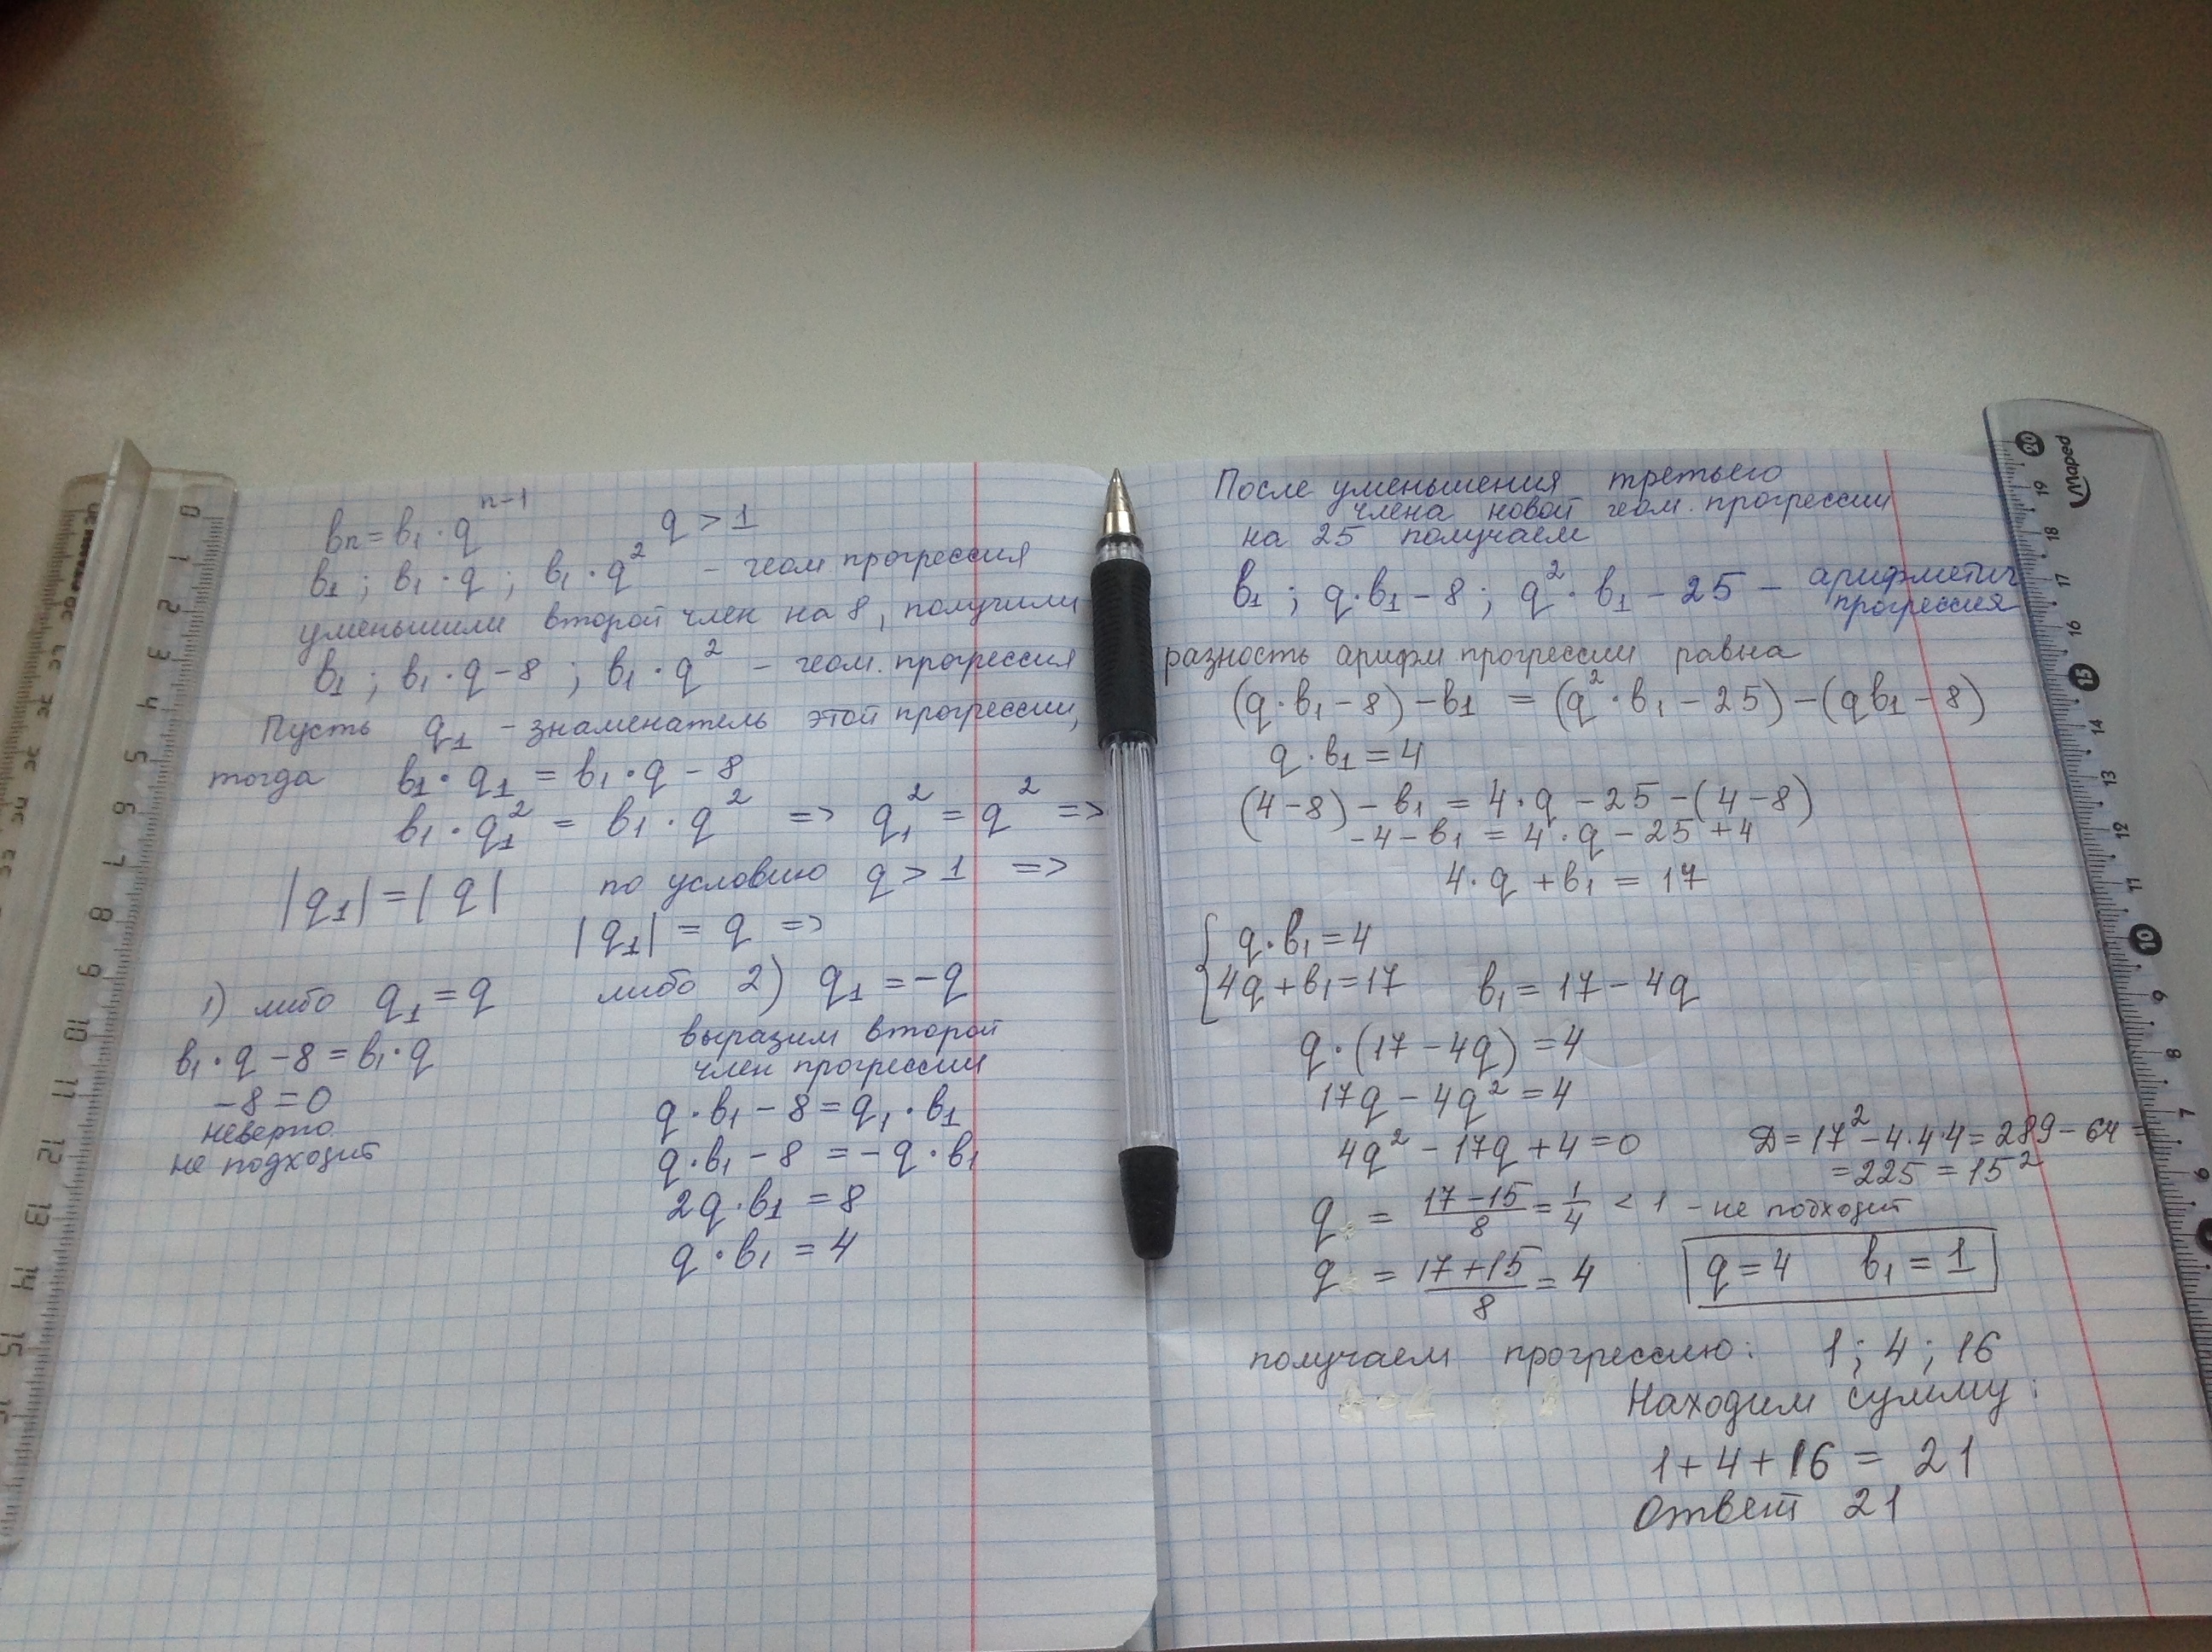 bn = b1 · q^(n-1)      q > 1
b1 ; b1 · q ; b1 · q² – геом прогрессия
уменьшили второй член на 8, получили
b1 ; b1 · q – 8 ; b1 · q² – геом. прогрессия
Пусть q1 – знаменатель этой прогрессии,
тогда b1 · q1 = b1 · q – 8
b1 · q1² = b1 · q² => q1² = q² =>
|q1| = |q|   по условию q > 1 =>
|q1| = q =>
1) либо q1 = q   либо 2) q1 = –q
b1 · q – 8 = b1 · q
–8 = 0
неверно
не подходит
выразим второй
член прогрессии
q · b1 – 8 = q1 · b1
q · b1 – 8 = –q · b1
2q · b1 = 8
q · b1 = 4
После уменьшения третьего
члена новой геом. прогрессии
на 25 получаем
b1 ; q · b1 – 8 ; q² · b1 – 25 – арифметич
прогрессия
разность арифм прогрессии равна
(q · b1 – 8) – b1 = (q² · b1 – 25) – (qb1 – 8)
q · b1 = 4
(4 – 8) – b1 = 4 · q – 25 – (4 – 8)
–4 – b1 = 4 · q – 25 + 4
4 · q + b1 = 17
{ q · b1 = 4
4q + b1 = 17   b1 = 17 – 4q
q · (17 – 4q) = 4
17q – 4q² = 4
4q² – 17q + 4 = 0   D = 17² – 4·4·4 = 289 – 64 =
= 225 = 15²
q = (17 – 15)/8 = 1/4 < 1 – не подходит
q = (17 + 15)/8 = 4   q = 4   b1 = 1
получаем прогрессию: 1 ; 4 ; 16
Находим сумму:
1 + 4 + 16 = 21
Ответ 21
Maped
20
19
18
17
16
15
14
13
12
11
10
9
8
7
6
0
1
2
3
4
5
6
7
8
9
10
11
12
13
14
15